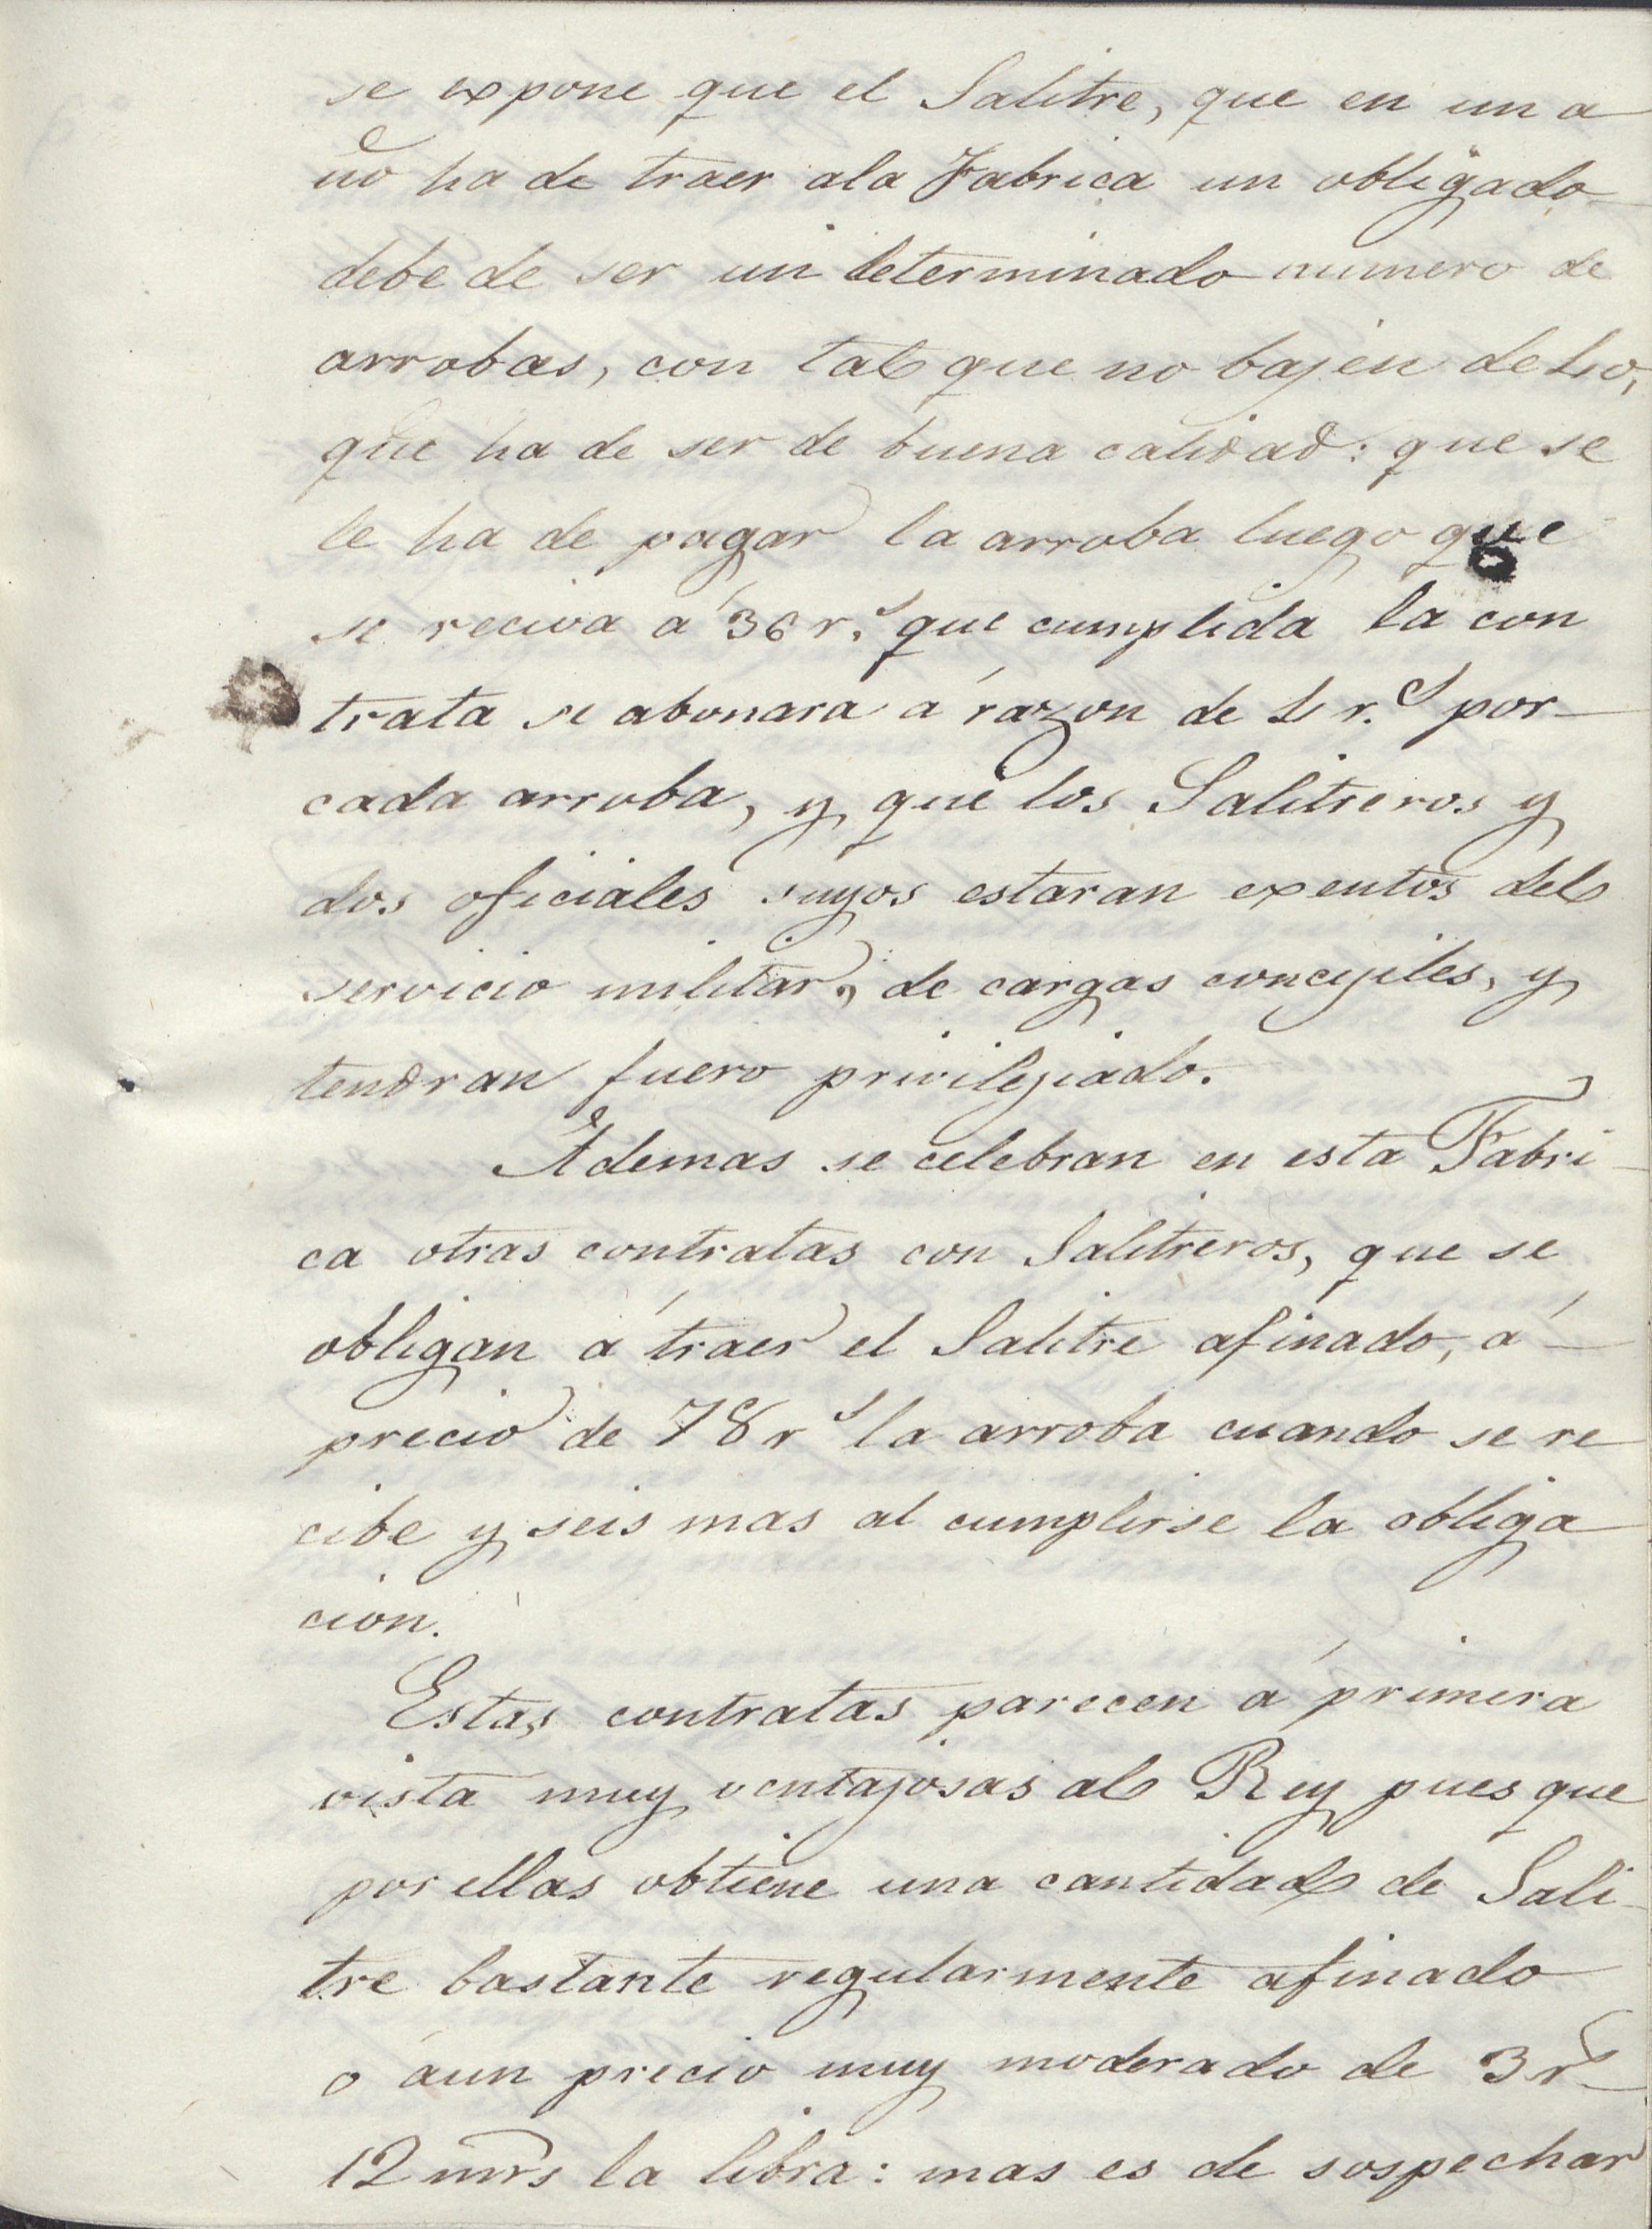 se expone que el Salitre, que en un a
ño ha de traer ala Fabrica un obligado
debe de ser un determinado numero de
arrobas, con tal que no bajen de 40,
que ha de ser de buena calidad: que se
le ha de pagar la arroba luego que
se reciva á 36 r.s que cumplida la con
trata se abonara á razon de 4 r.s por
cada arroba, y que los Salitreros y
dos oficiales suyos estaran exentos del
servicio militar, de cargas concejiles, y
tendran fuero privilejiado.
Ademas se celebran en esta Fabri
ca otras contratas con Salitreros, que se
obligan á traer el Salitre afinado, á
precio de 78 r.s la arroba cuando se re
cibe y seis mas al cumplirse la obliga
cion.
Estas contratas parecen á primera
vista muy ventajosas al Rey pues que
por ellas obtiene una cantidad de Sali
tre bastante regularmente afinado
o áun precio muy moderado de 3 rs
12 mrs la libra: mas es de sospechar